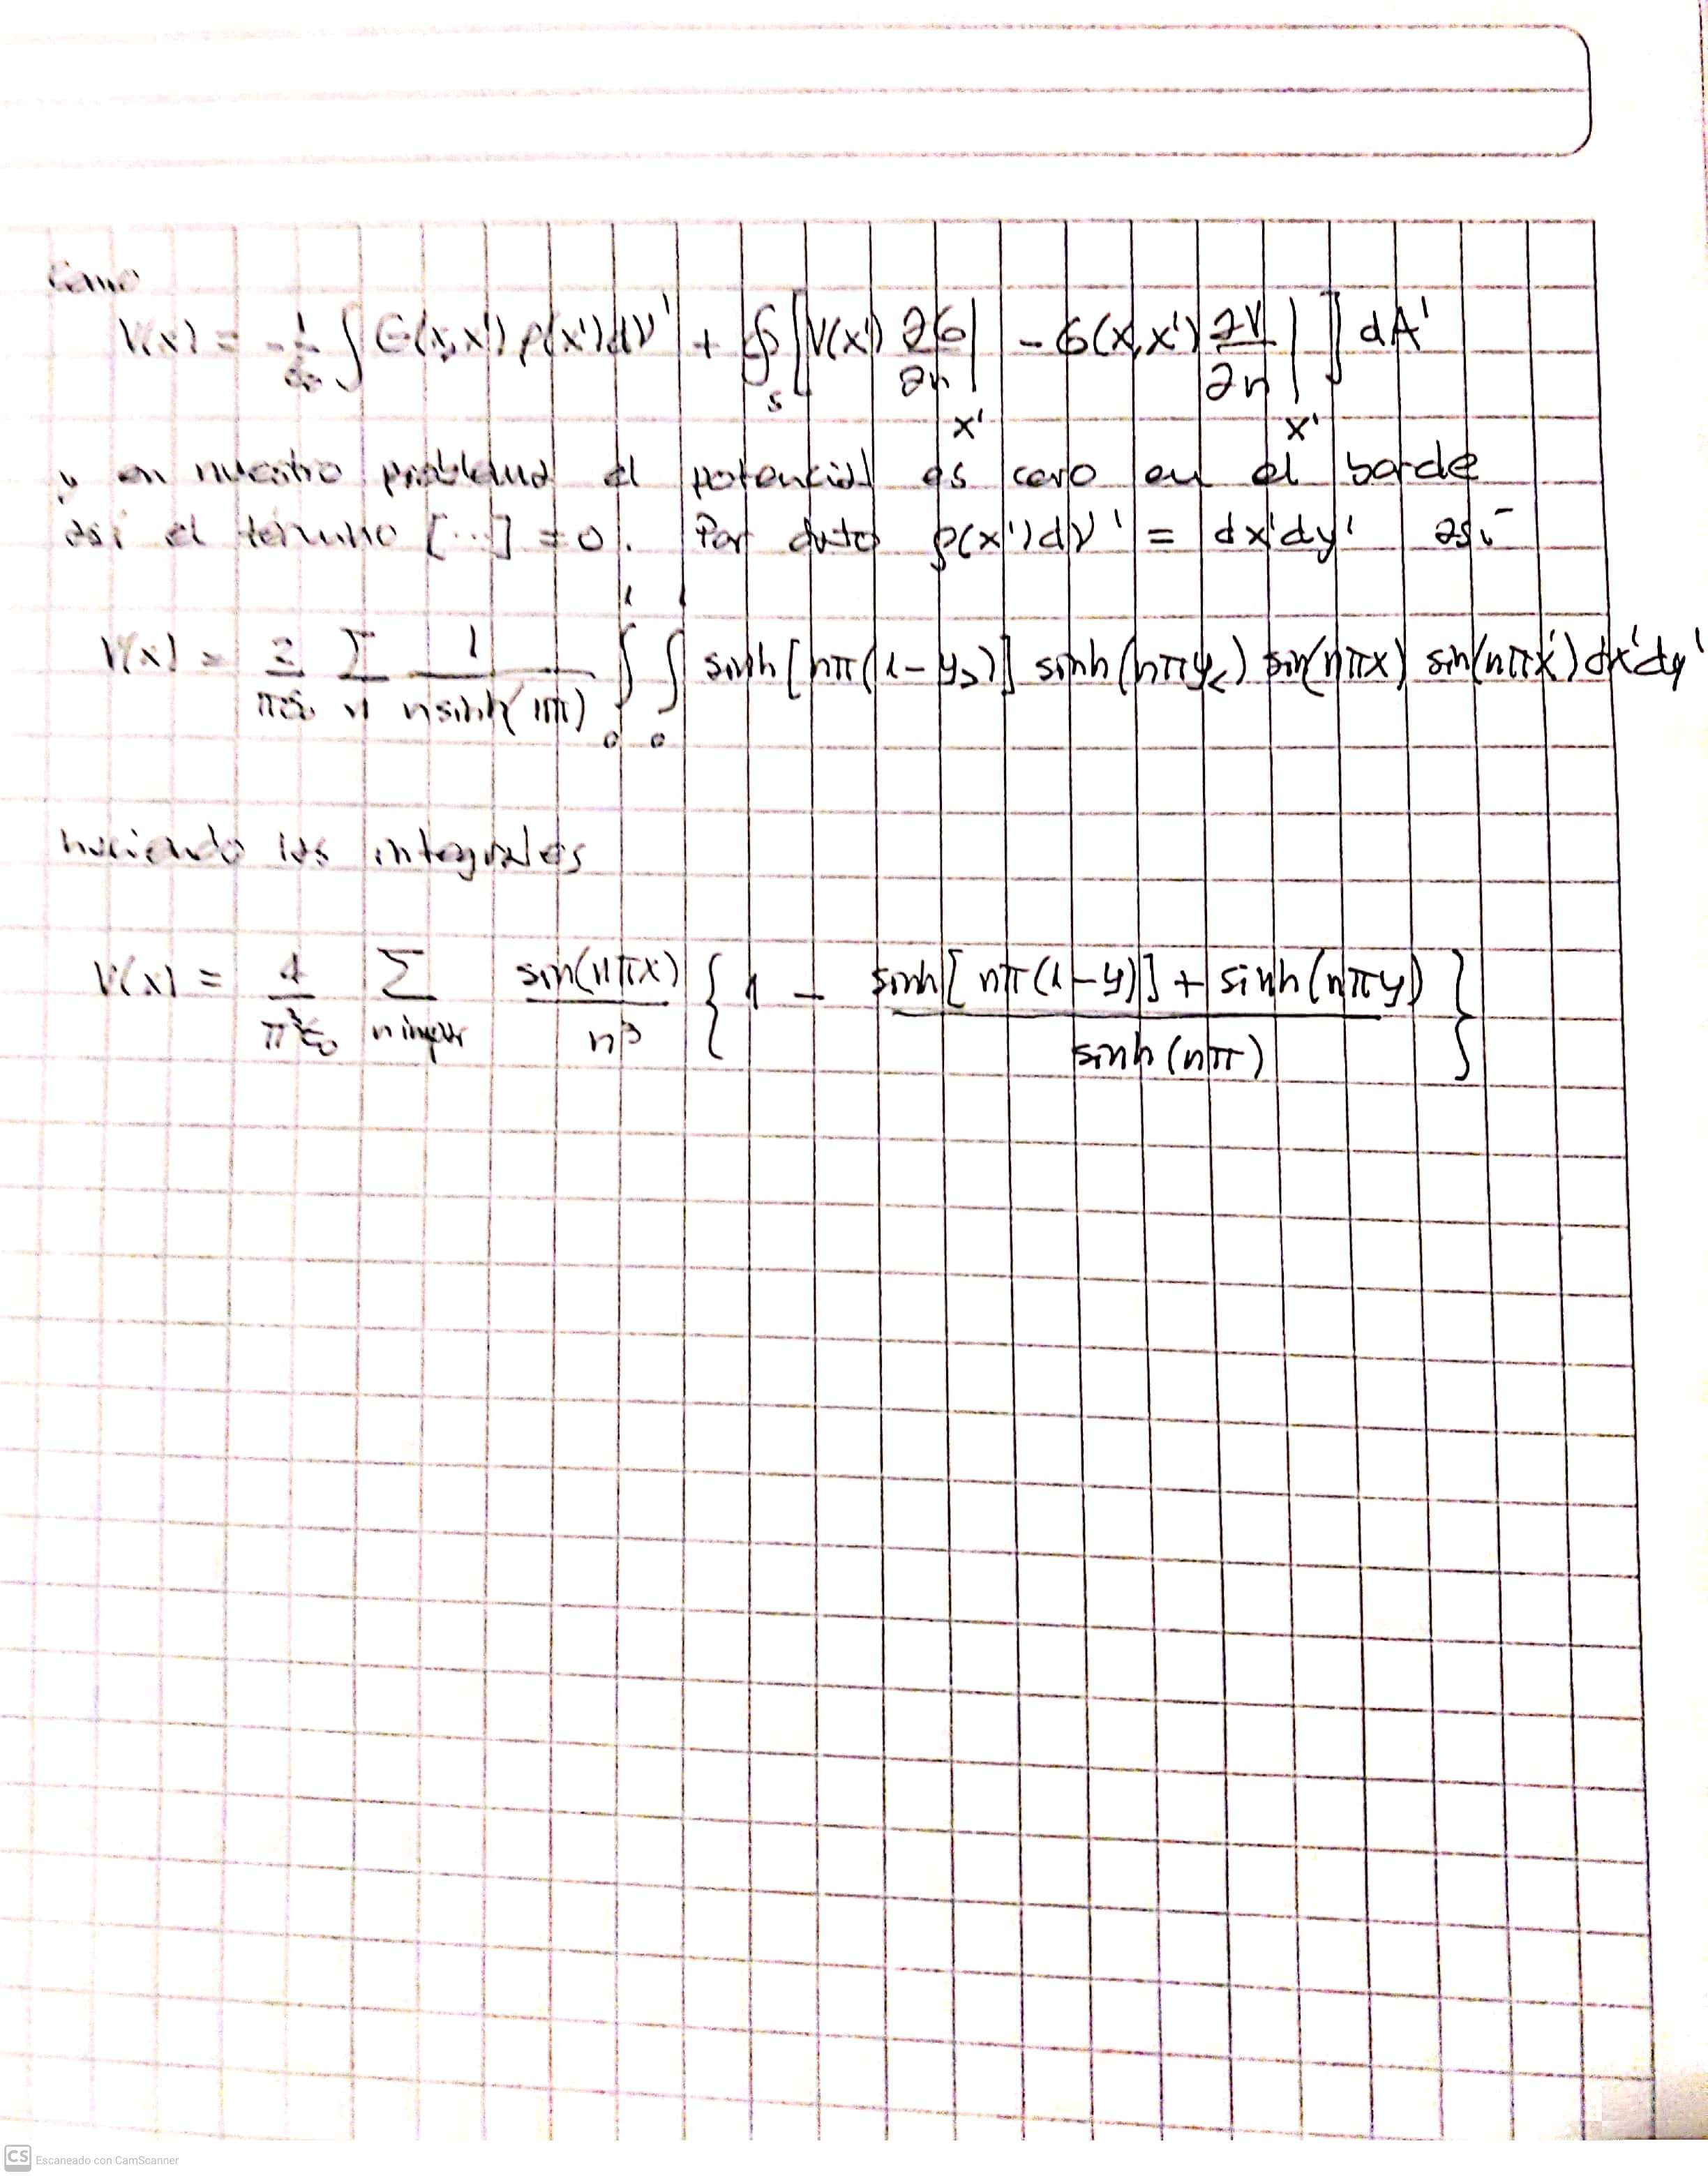 Como
V(x) = -1/ε₀ ∫ G(x,x') ρ(x')dV' + ∮_S [V(x') ∂G/∂n|_x' - G(x,x') ∂V/∂n|_x'] dA'
y en nuestro problema el potencial es cero en el borde
así el término [...] = 0. Por dato ρ(x')dV' = dx'dy' así
V(x) = 2/(πε₀) Σ_n 1/(n sinh(nπ)) ∫₀¹ ∫₀¹ sinh[nπ(1-y>)] sinh(nπy<) sin(nπx) sin(nπx') dx'dy'
haciendo las integrales
V(x) = 4/(π³ε₀) Σ_{n impar} sin(nπx)/n³ {1 - (sinh[nπ(1-y)] + sinh(nπy))/sinh(nπ)}
CS Escaneado con CamScanner